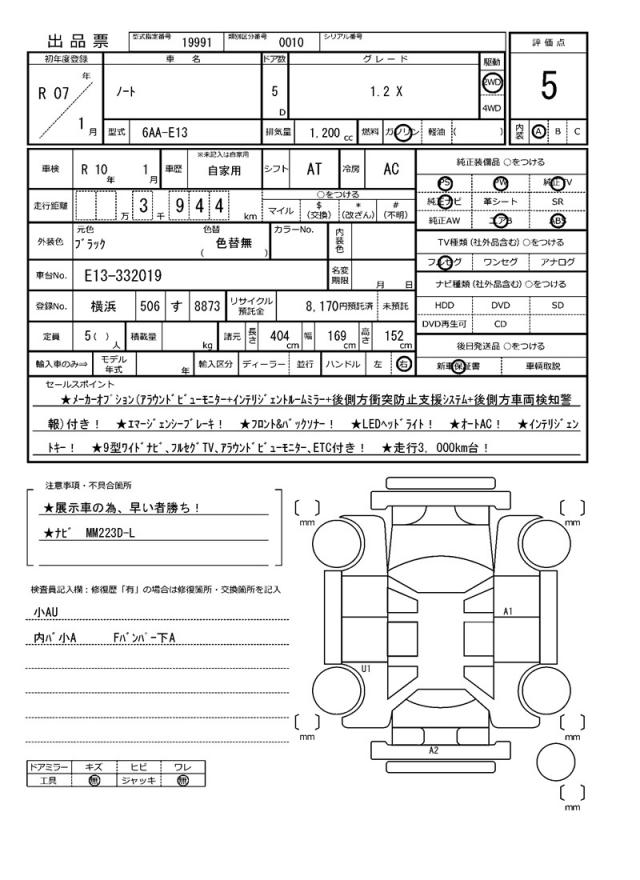 出品票 型式指定番号 19991 類別区分番号 0010 シリアル番号
評価点
5
内装 A B C
初年度登録 車名 ドア数 グレード 駆動
R 07 年 1 月 ノート 5 D 1.2 X 2WD 4WD
型式 6AA-E13 排気量 1.200 cc 燃料 ガソリン 軽油 ( )
車検 R 10 年 1 月 車歴 ※未記入は自家用 自家用 シフト AT 冷房 AC
走行距離 万 3 千 9 4 4 km ○をつける
マイル $ (交換) * (改ざん) # (不明)
外装色 元色 ブラック 色替 ( 色替無 ) カラーNo. 内装色
車台No. E13-332019 名変期限 月 日
登録No. 横浜 506 す 8873 リサイクル預託金 8,170円預託済 未預託
定員 5( ) 人 積載量 kg 諸元 長さ 404 cm 幅 169 cm 高さ 152 cm
輸入車のみ⇒ モデル年式 年 輸入区分 ディーラー 並行 ハンドル 左 右
純正装備品 ○をつける
PS PW 純正TV
純正ナビ 革シート SR
純正AW エアB ABS
TV種類(社外品含む)○をつける
フルセグ ワンセグ アナログ
ナビ種類(社外品含む)○をつける
HDD DVD SD
DVD再生可 CD
後日発送品 ○をつける
新車保証書 車輌取説
セールスポイント
★メーカーオプション(アラウンドビューモニター+インテリジェントルームミラー+後側方衝突防止支援システム+後側方車両検知警
報)付き! ★エマージェンシーブレーキ! ★フロント&バックソナー! ★LEDヘッドライト! ★オートAC! ★インテリジェン
トキー! ★9型ワイドナビ、フルセグTV、アラウンドビューモニター、ETC付き! ★走行3,000km台!
注意事項・不具合箇所
★展示車の為、早い者勝ち!
★ナビ MM223D-L
検査員記入欄:修復歴「有」の場合は修復箇所・交換箇所を記入
小AU
内パ小A Fバンパー下A
ドアミラー キズ ヒビ ワレ
工具 無 ジャッキ 無
[ ] mm
[ ] mm
A1
U1
[ ] mm
[ ] mm
A2
[ ] mm